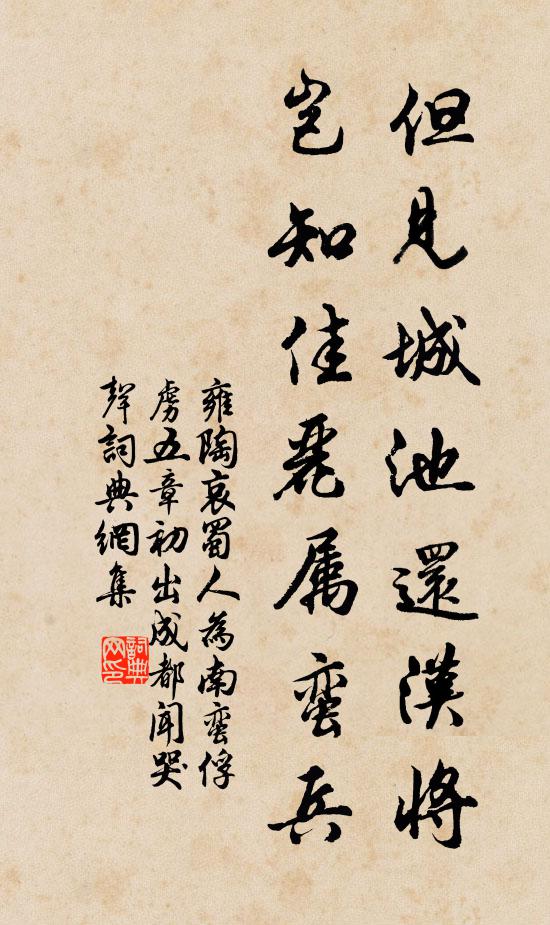 但見城池還漢將
岂知佳麗属蛮兵
雍陶哀蜀人為南蛮俘
虏五章初出成都聞哭
聲詞典網集
詞典
网印